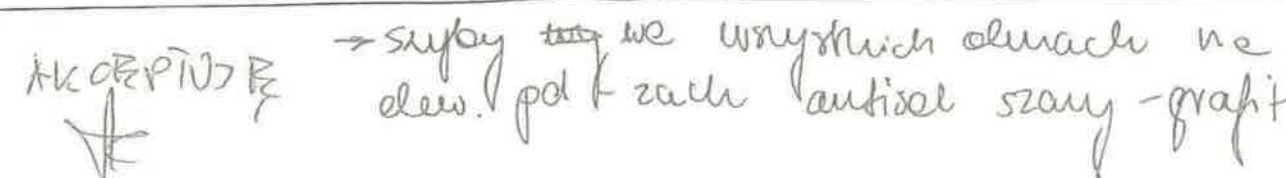 AKCEPTUJĘ
→ szyby we wszystkich oknach na
elew. pd + zach antisol szary - grafit